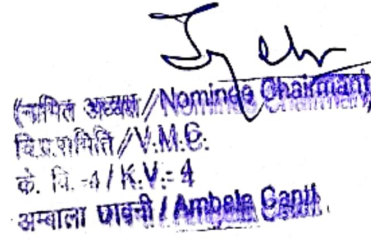 (नामित अध्यक्ष/Nominee Chairman)
वि.प्र.समिति/V.M.C.
के. वि.-4/K.V.-4
अम्बाला छावनी/Ambala Cantt.